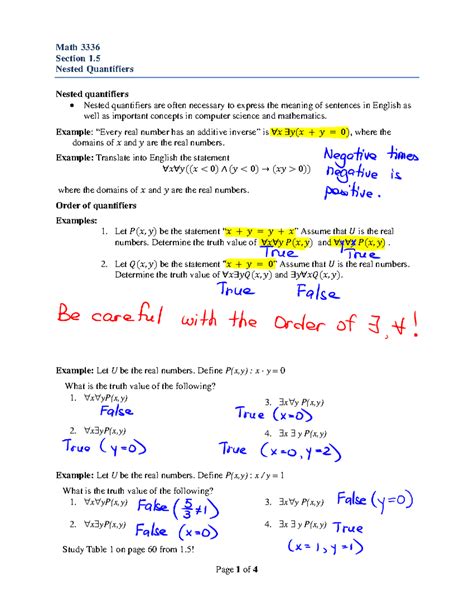 Math 3336
Section 1.5
Nested Quantifiers
Nested quantifiers
• Nested quantifiers are often necessary to express the meaning of sentences in English as
well as important concepts in computer science and mathematics.
Example: “Every real number has an additive inverse” is ∀x ∃y(x + y = 0), where the
domains of x and y are the real numbers.
Example: Translate into English the statement
∀x∀y((x < 0) ∧ (y < 0) → (xy > 0))
Negative times
negative is
positive.
where the domains of x and y are the real numbers.
Order of quantifiers
Examples:
1. Let P(x, y) be the statement “x + y = y + x” Assume that U is the real
numbers. Determine the truth value of ∀x∀y P(x, y) and ∀y∀x P(x, y).
True True
2. Let Q(x, y) be the statement “x + y = 0” Assume that U is the real numbers.
Determine the truth value of ∀x∃yQ(x, y) and ∃y∀xQ(x, y).
True False
Be careful with the Order of ∃, ∀!
Example: Let U be the real numbers. Define P(x,y) : x · y = 0
What is the truth value of the following?
1. ∀x∀yP(x,y)
False
3. ∃x∀y P(x,y)
True (x=0)
2. ∀x∃yP(x,y)
True (y=0)
4. ∃x ∃ y P(x,y)
True (x=0, y=2)
Example: Let U be the real numbers. Define P(x,y) : x / y = 1
What is the truth value of the following?
1. ∀x∀yP(x,y) False (5/3 ≠ 1)
3. ∃x∀y P(x,y) False (y=0)
2. ∀x∃yP(x,y) False (x=0)
4. ∃x ∃ y P(x,y) True
(x=1, y=1)
Study Table 1 on page 60 from 1.5!
Page 1 of 4